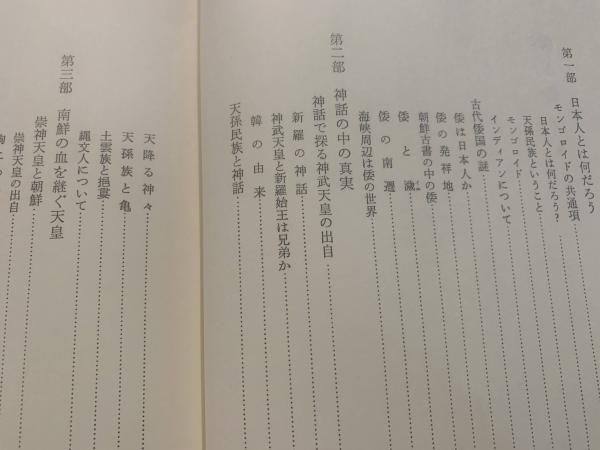 第一部　日本人とは何だろう
モンゴロイドの共通項
日本人とは何だろう?
天孫民族ということ
モンゴロイド
インディアンについて
古代倭国の謎
倭は日本人か
倭の発祥地
朝鮮古書の中の倭
倭と濊
倭の南遷
海峡周辺は倭の世界
第二部　神話の中の真実
神話で探る神武天皇の出自
新羅の神話
神武天皇と新羅始王は兄弟か
韓の由来
天孫民族と神話
天降る神々
天孫族と亀
土雲族と挹婁
縄文人について
第三部　南鮮の血を継ぐ天皇
崇神天皇と朝鮮
崇神天皇の出自